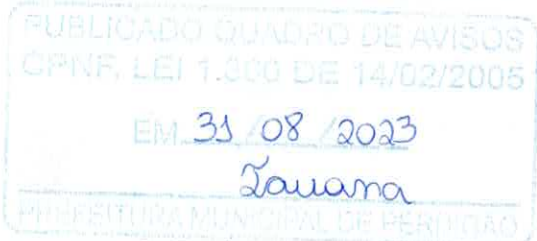 PUBLICADO QUADRO DE AVISOS
CONF. LEI 1.300 DE 14/02/2005
EM 31/08/2023
Tauana
PREFEITURA MUNICIPAL DE PERDIGÃO